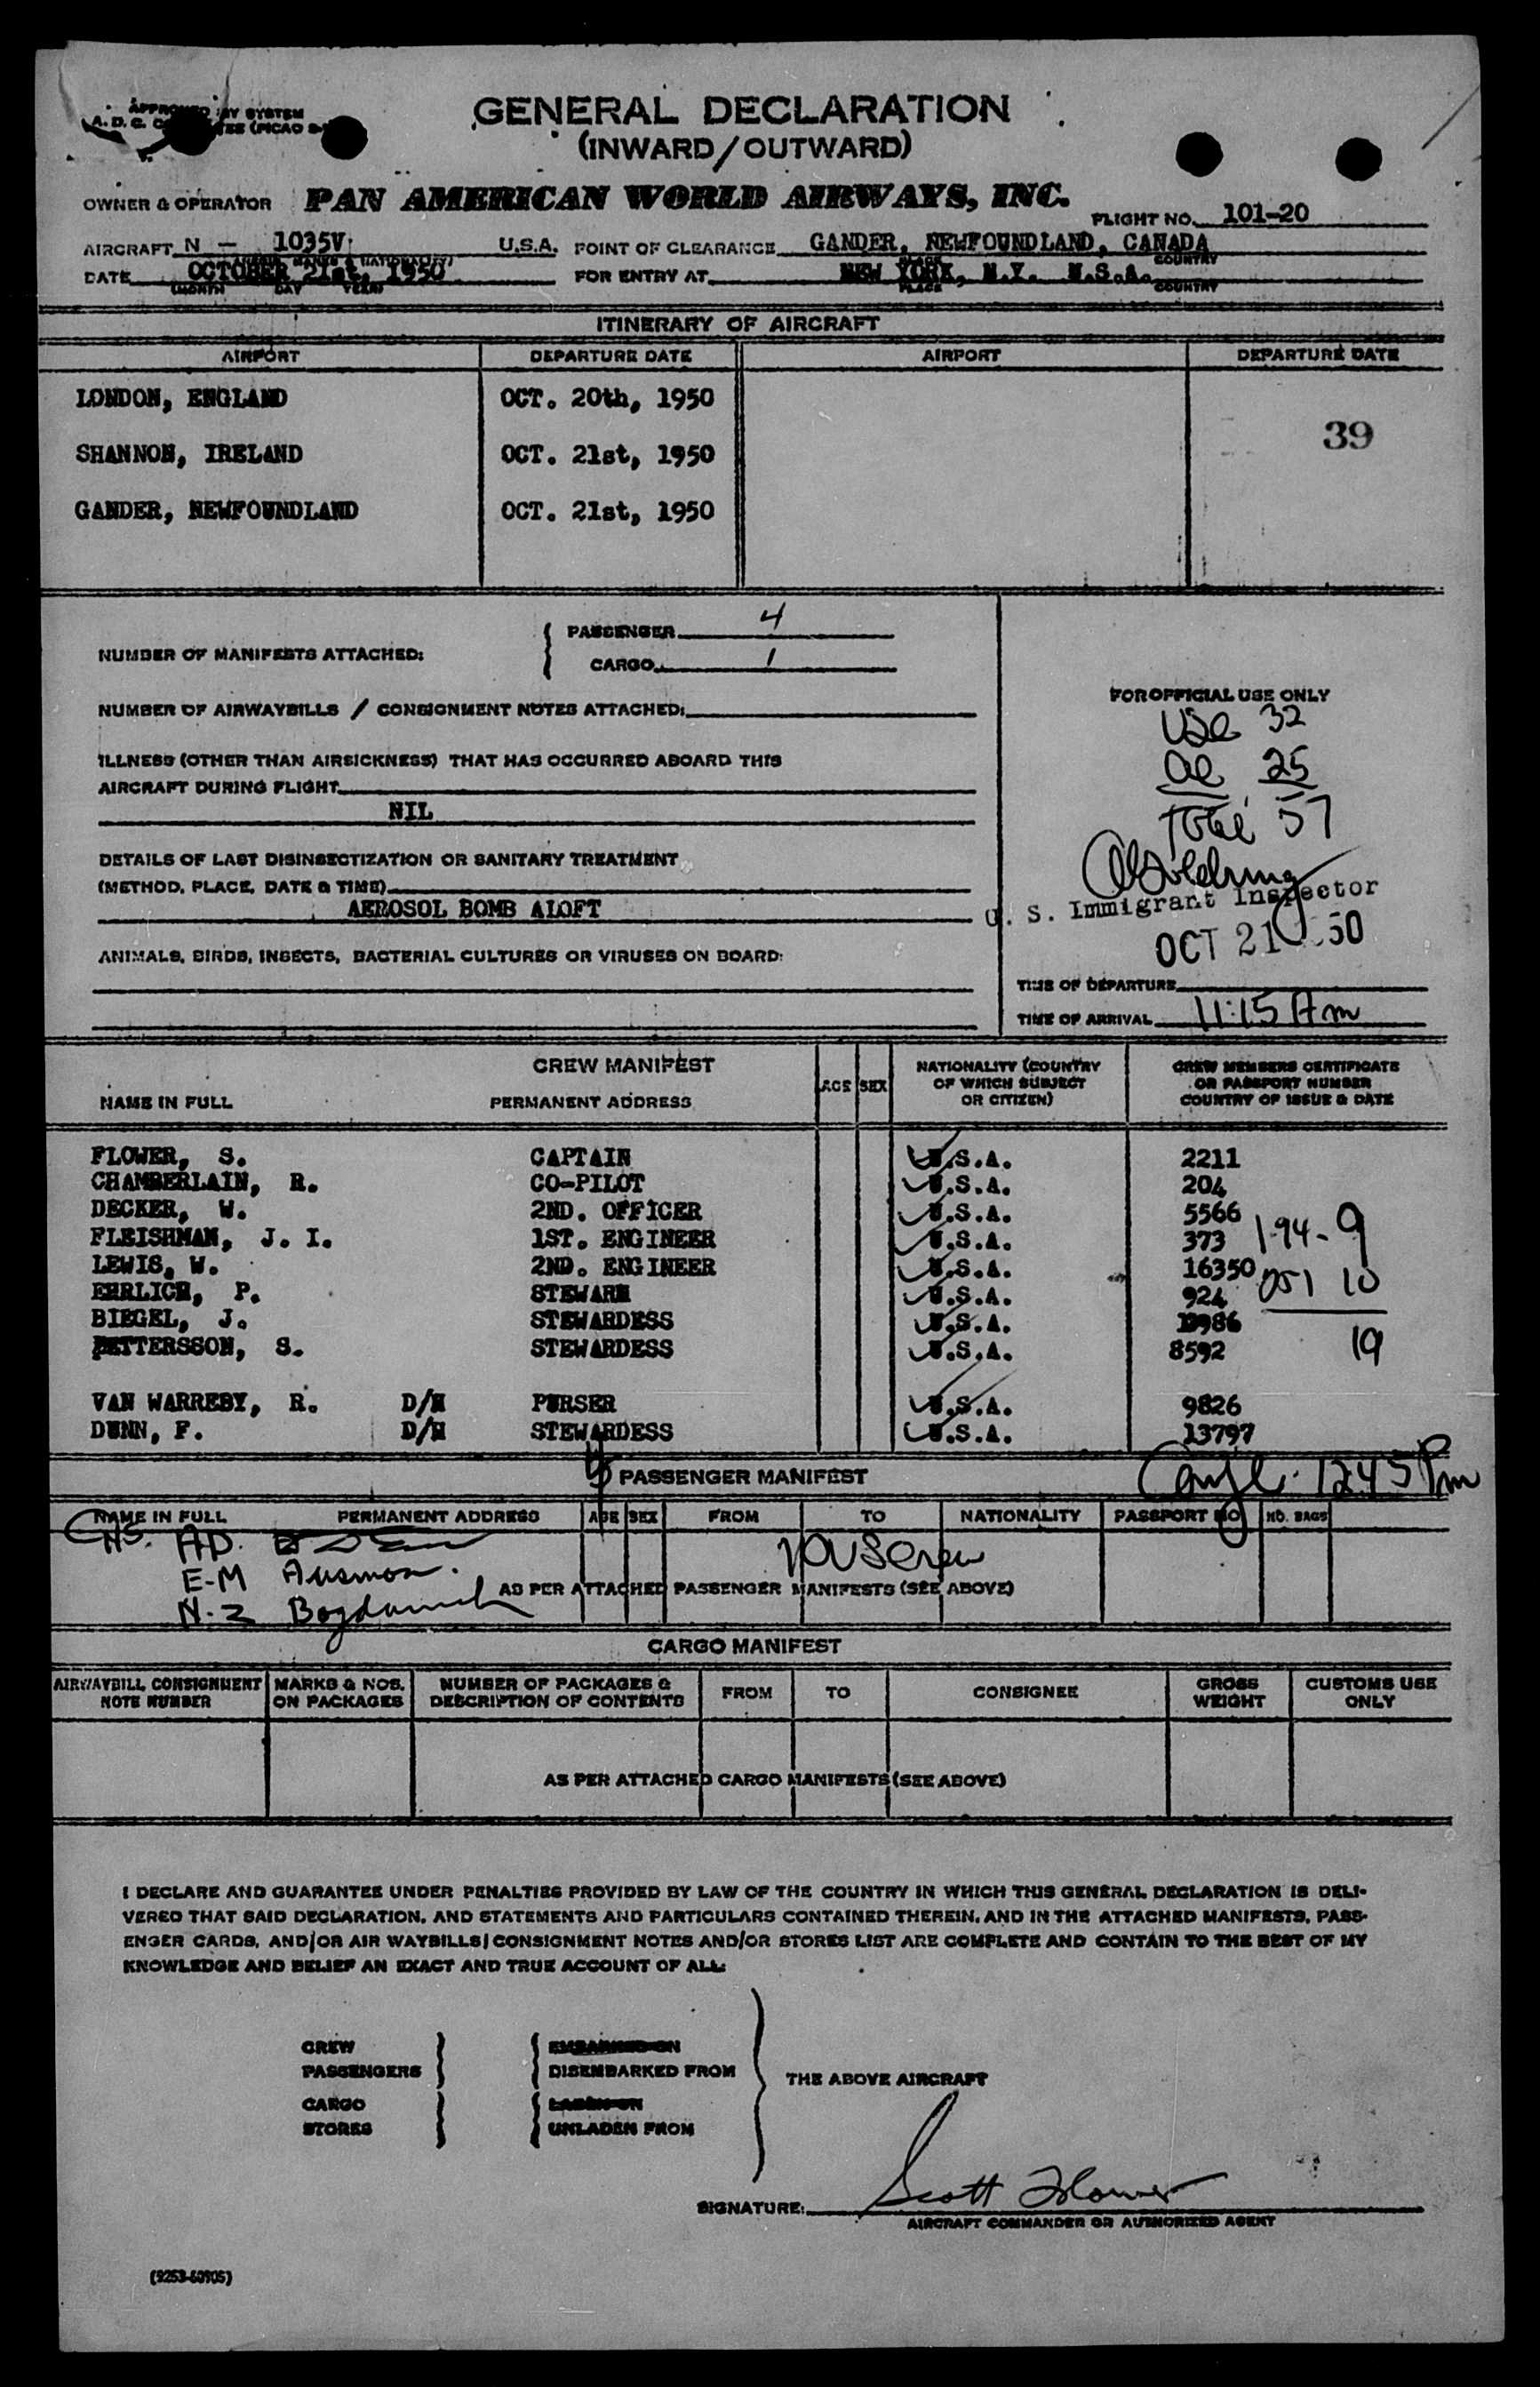 APPROVED BY SYSTEM
GENERAL DECLARATION
(INWARD/OUTWARD)
OWNER & OPERATOR PAN AMERICAN WORLD AIRWAYS, INC.
FLIGHT NO. 101-20
AIRCRAFT N - 1035V U.S.A. POINT OF CLEARANCE GANDER, NEWFOUNDLAND, CANADA
(MARKS & NATIONALITY) PLACE COUNTRY
DATE OCTOBER 21st, 1950 FOR ENTRY AT NEW YORK, N.Y. U.S.A.
(MONTH DAY YEAR) PLACE COUNTRY
ITINERARY OF AIRCRAFT
AIRPORT DEPARTURE DATE AIRPORT DEPARTURE DATE
LONDON, ENGLAND OCT. 20th, 1950
39
SHANNON, IRELAND OCT. 21st, 1950
GANDER, NEWFOUNDLAND OCT. 21st, 1950
NUMBER OF MANIFESTS ATTACHED:
PASSENGER 4
CARGO 1
NUMBER OF AIRWAYBILLS / CONSIGNMENT NOTES ATTACHED:
ILLNESS (OTHER THAN AIRSICKNESS) THAT HAS OCCURRED ABOARD THIS
AIRCRAFT DURING FLIGHT
NIL
DETAILS OF LAST DISINSECTIZATION OR SANITARY TREATMENT
(METHOD, PLACE, DATE & TIME)
AEROSOL BOMB ALOFT
ANIMALS, BIRDS, INSECTS, BACTERIAL CULTURES OR VIRUSES ON BOARD:
FOR OFFICIAL USE ONLY
USC 32
al 25
Total 57
U. S. Immigrant Inspector
OCT 21 50
TIME OF DEPARTURE
TIME OF ARRIVAL 11:15 Am
CREW MANIFEST
NAME IN FULL PERMANENT ADDRESS AGE SEX NATIONALITY (COUNTRY OF WHICH SUBJECT OR CITIZEN) CREW MEMBERS CERTIFICATE OR PASSPORT NUMBER COUNTRY OF ISSUE & DATE
FLOWER, S. CAPTAIN U.S.A. 2211
CHAMBERLAIN, R. CO-PILOT U.S.A. 204
DECKER, W. 2ND. OFFICER U.S.A. 5566
FLEISHMAN, J. I. 1ST. ENGINEER U.S.A. 373 I-94- 9
LEWIS, W. 2ND. ENGINEER U.S.A. 16350
EHRLICH, P. STEWARD U.S.A. 924 051 10
BIEGEL, J. STEWARDESS U.S.A. 9986
PETTERSSON, S. STEWARDESS U.S.A. 8592 19
VAN WARREBY, R. D/H PURSER U.S.A. 9826
DUNN, F. D/H STEWARDESS U.S.A. 13797
PASSENGER MANIFEST
1245 Pm
NAME IN FULL PERMANENT ADDRESS AGE SEX FROM TO NATIONALITY PASSPORT NO. NO. BAGS
A-D.
E-M Ausmon.
N-Z Bogdanich
AS PER ATTACHED PASSENGER MANIFESTS (SEE ABOVE)
CARGO MANIFEST
AIRWAYBILL CONSIGNMENT NOTE NUMBER MARKS & NOS. ON PACKAGES NUMBER OF PACKAGES & DESCRIPTION OF CONTENTS FROM TO CONSIGNEE GROSS WEIGHT CUSTOMS USE ONLY
AS PER ATTACHED CARGO MANIFESTS (SEE ABOVE)
I DECLARE AND GUARANTEE UNDER PENALTIES PROVIDED BY LAW OF THE COUNTRY IN WHICH THIS GENERAL DECLARATION IS DELI-
VERED THAT SAID DECLARATION, AND STATEMENTS AND PARTICULARS CONTAINED THEREIN, AND IN THE ATTACHED MANIFESTS, PASS-
ENGER CARDS, AND/OR AIR WAYBILLS/CONSIGNMENT NOTES AND/OR STORES LIST ARE COMPLETE AND CONTAIN TO THE BEST OF MY
KNOWLEDGE AND BELIEF AN EXACT AND TRUE ACCOUNT OF ALL:
CREW EMBARKED ON
PASSENGERS DISEMBARKED FROM
THE ABOVE AIRCRAFT
CARGO LADEN ON
STORES UNLADEN FROM
SIGNATURE: Scott Flower
AIRCRAFT COMMANDER OR AUTHORIZED AGENT
(9253-60905)